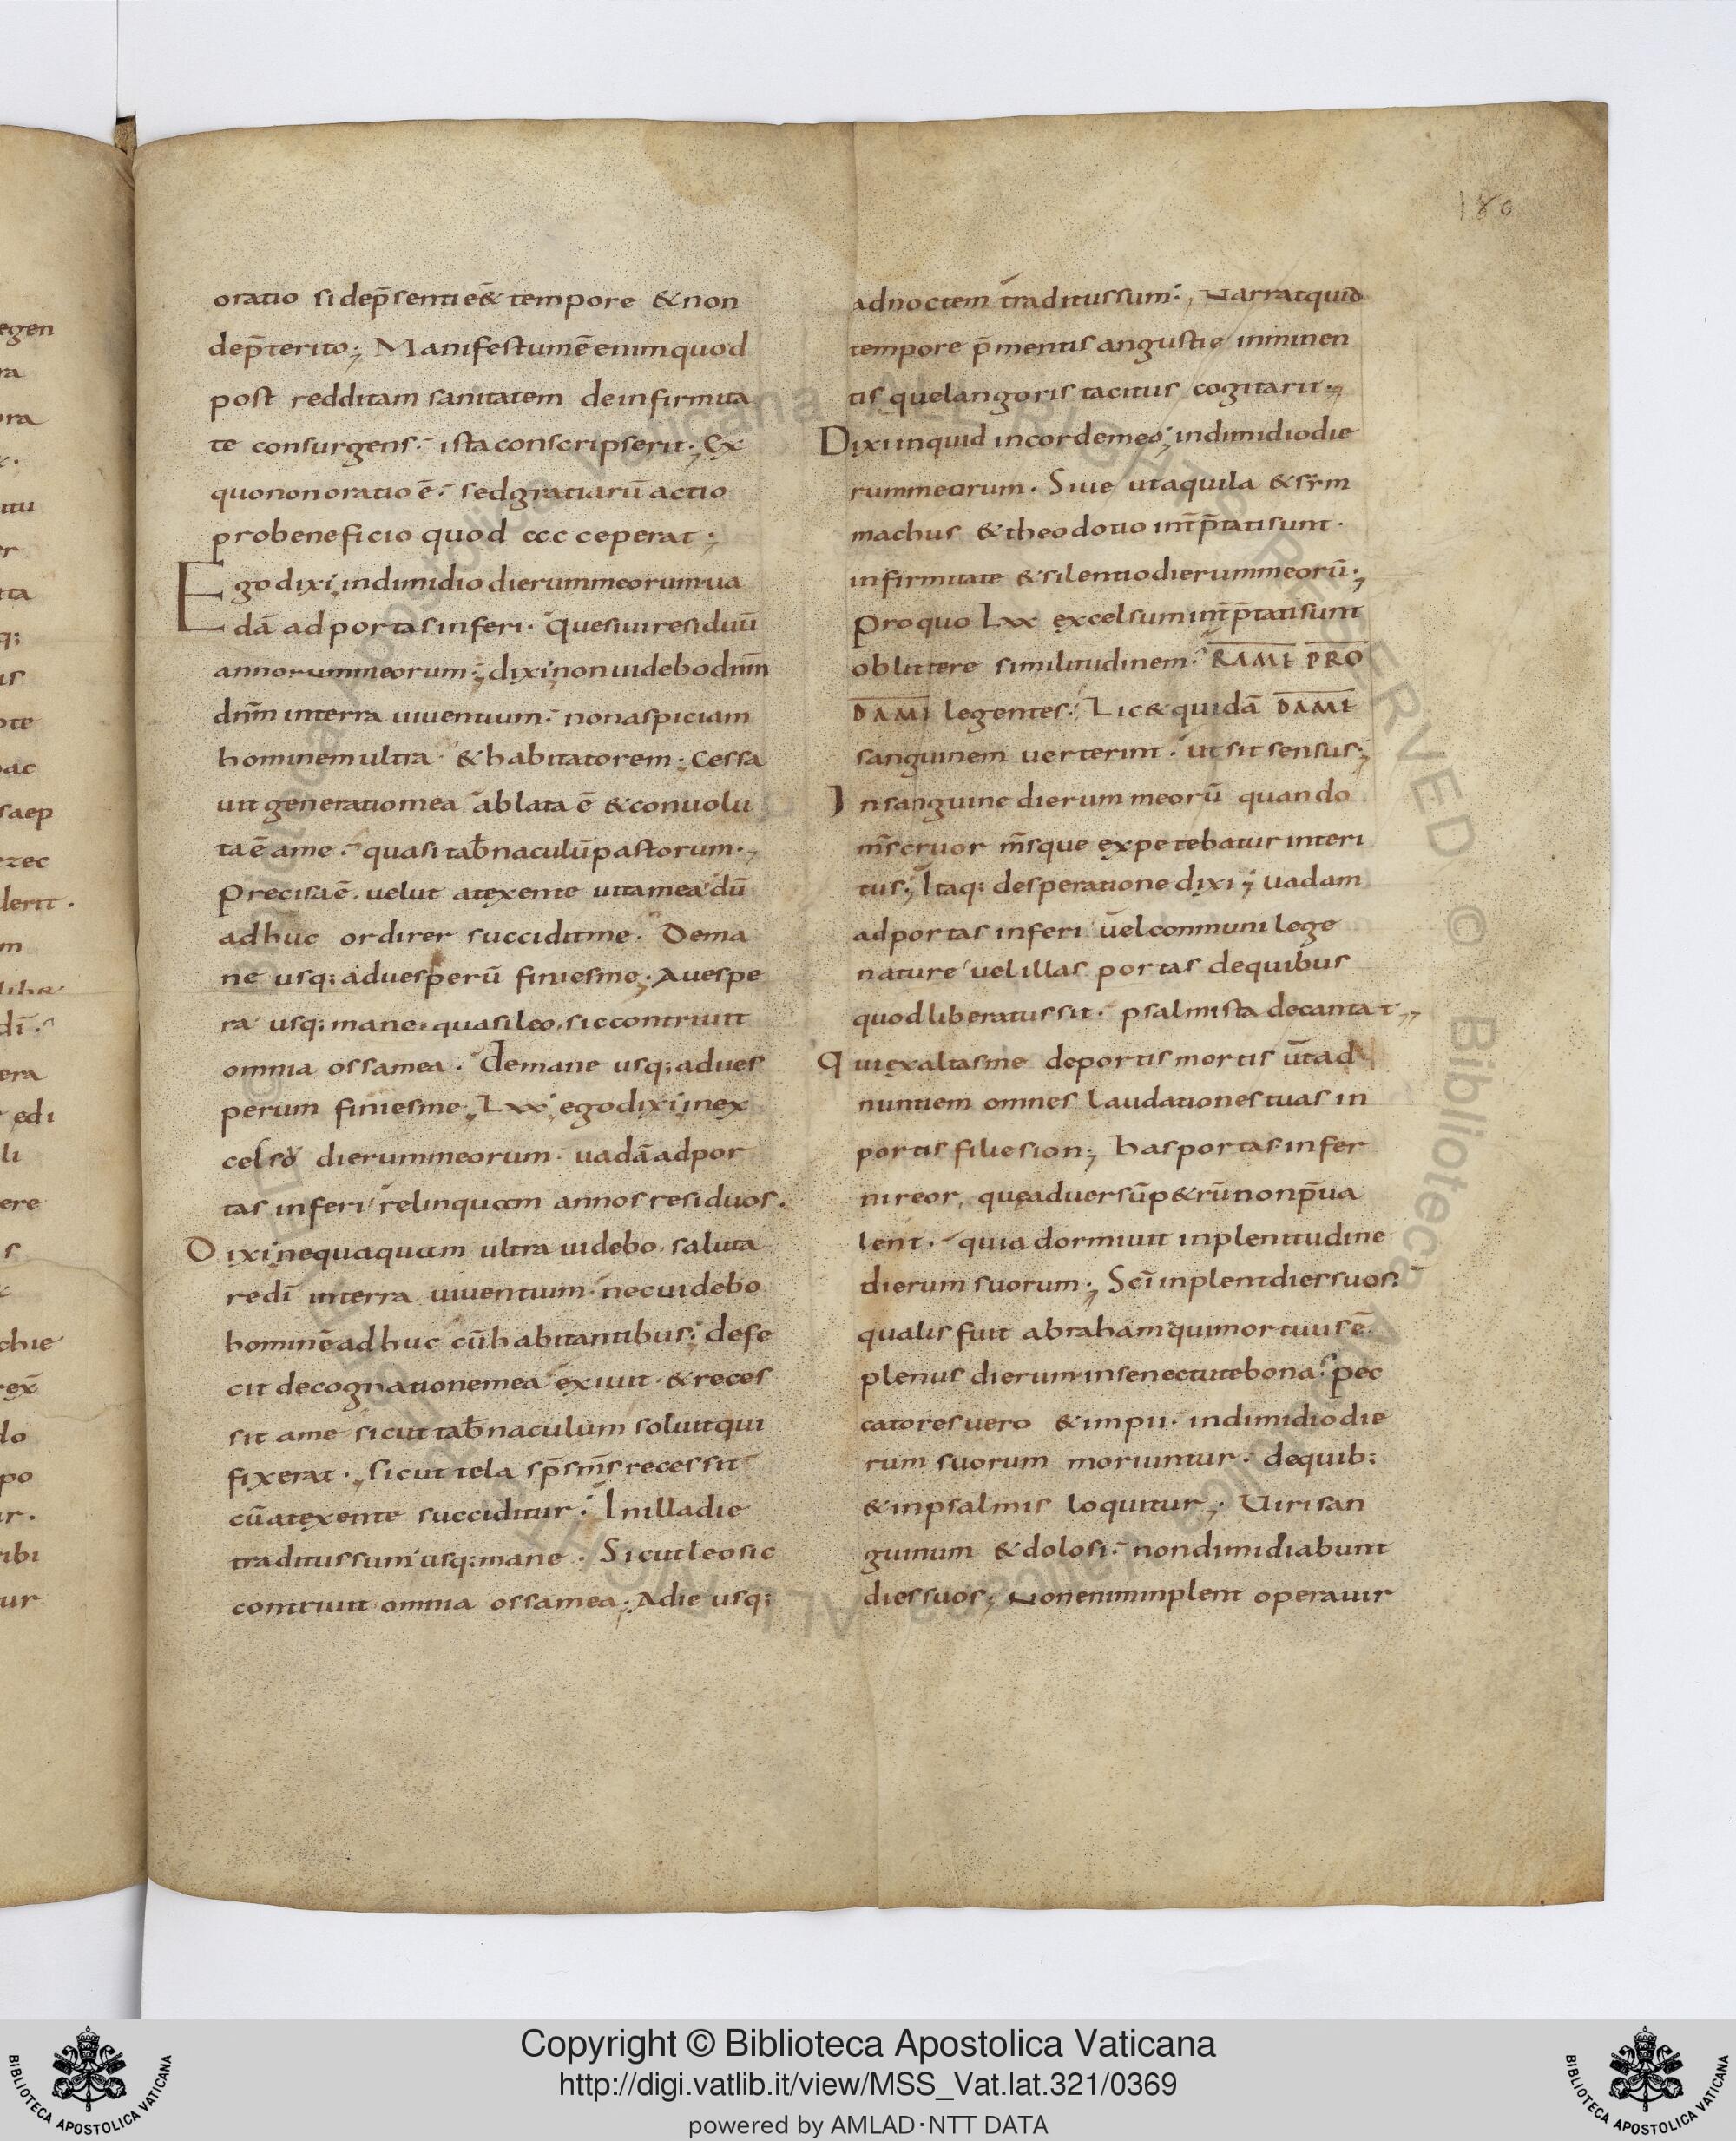 180
oratio si dep̄sentieē& tempore & non
dep̄terito; Manifestumēenimquod
post redditam sanitatem deinfirmita
te consurgens. ista conscripserit; Ex
quononoratioē. sedgratiarū actio
probeneficio quod ccc ceperat;
Egodixi indimidio dierummeorumua
dā ad portas inferi. Quesiuiresiduū
annorummeorum; dixi nonuidebodnm̄
dnm̄ interra uiuentium. nonaspiciam
hominemultra & habitatorem. Cessa
uit generatiomea ablata ē & conuolu
taē ame. quasi tab̄naculūpastorum;
Precisaē. uelut atexente uitamea dū
adhuc ordirer succiditme. Dema
ne usq; aduesperū finiesme; Auespe
ra usq; mane. quasileo. siccontriuit
omnia ossamea. demane usq; adues
perum finiesme; Lxx egodixi inex
celso dierummeorum. uadā adpor
tas inferi relinquam annos residuos.
Dixi nequaquam ultra uidebo. saluta
redī interra uiuentium. necuidebo
hominē adhuc cūhabitantibus; defe
cit decognationemea exiuit. & reces
sit ame sicut tab̄naculum soluitqui
fixerat. sicut tela sp̄s m̄s recessit
cūatexente succiditur. Inilladie
traditussum usq; mane. Sicutleosic
contriuit omnia ossamea; Adie usq;
adnoctem traditussum; Narratquid
tempore p̄ mentis angustie inminen
tis quelangoris tacitus cogitarit;
Dixi inquid incordemeo; indimidiodie
rummeorum. Siue utaquila & sym
machus & theodotio int̄p̄tatisunt.
infirmitate & silentiodierummeorū;
Proquo Lxx excelsumint̄p̄tatisunt
oblittere similitudinem. RAMI PRO
DAMI legentes. Lic& quidā DAMI
sanguinem uerterint. ut sit sensus;
Insanguine dierum meorū quando
m̄s cruor m̄sque expetebatur interi
tus; Itaq; desperatione dixi; uadam
adportas inferi uel conmuni lege
nature uel illas portas dequibus
quodliberatussit. psalmista decantat,,
Quiexaltasme deportis mortis ūt ad
nuntiem omnes laudationes tuas in
portis filiesion; has portas infer
ni reor, quęaduersūp&rūnonp̄ua
lent. quia dormiuit inplenitudine
dierum suorum; Scī inplentdiessuos.
qualis fuit abraham quimortuusē
plenus dierum insenectutebona. pec
catores uero & impii. indimidiodie
rum suorum moriuntur. dequib;
& inpsalmis loquitur; Uirisan
guinum & dolosi. nondimidiabunt
diessuos; Noneniminplent operauir
egen
ra
ora
itu
er
ita
q;
us
ote
oac
saep
ezec
derit.
m
dī.
era
edi
li
ere
s
chie
rex̄
do
po
ur.
ribi
tur
Copyright © Biblioteca Apostolica Vaticana
http://digi.vatlib.it/view/MSS_Vat.lat.321/0369
powered by AMLAD·NTT DATA
BIBLIOTECA APOSTOLICA VATICANA
BIBLIOTECA APOSTOLICA VATICANA